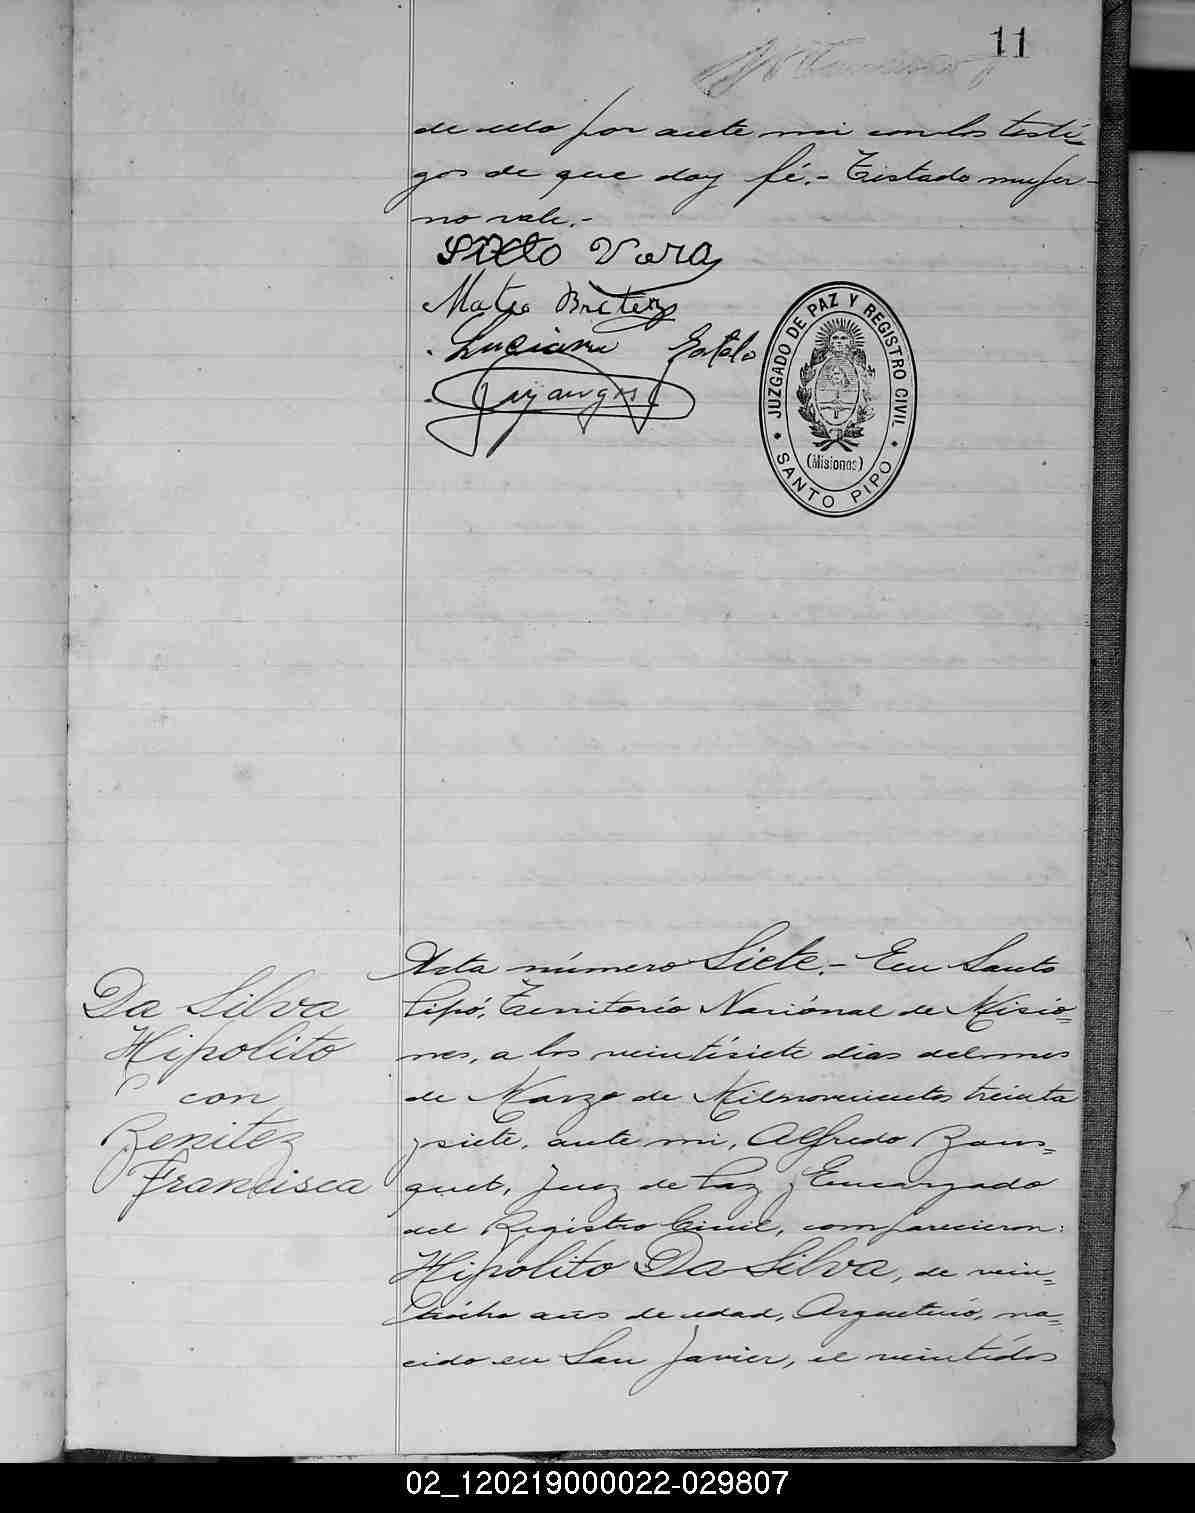 11
de ello por ante mi con los testi-
gos de que doy fé.- Testado mujer-
no vale.-
Sixto Vera
Mateo Britez
Luciano
JUZGADO DE PAZ Y REGISTRO CIVIL
(Misiones)
SANTO PIPO
Da Silva
Hipolito
con
Benitez
Francisca
Acta número Siete.- En Santo
Pipó, Territorio Naciónal de Misio=
nes, a los veintisiete dias del mes
de Marzo de Mil novecientos treinta
y siete, ante mi, Alfredo Bous=
quet, Juez de Paz y Encargado
del Registro Civil, comparecieron:
Hipolito Da Silva, de vein=
tiocho años de edad, Argentino, na=
cido en San Javier, el veintidós
02_120219000022-029807